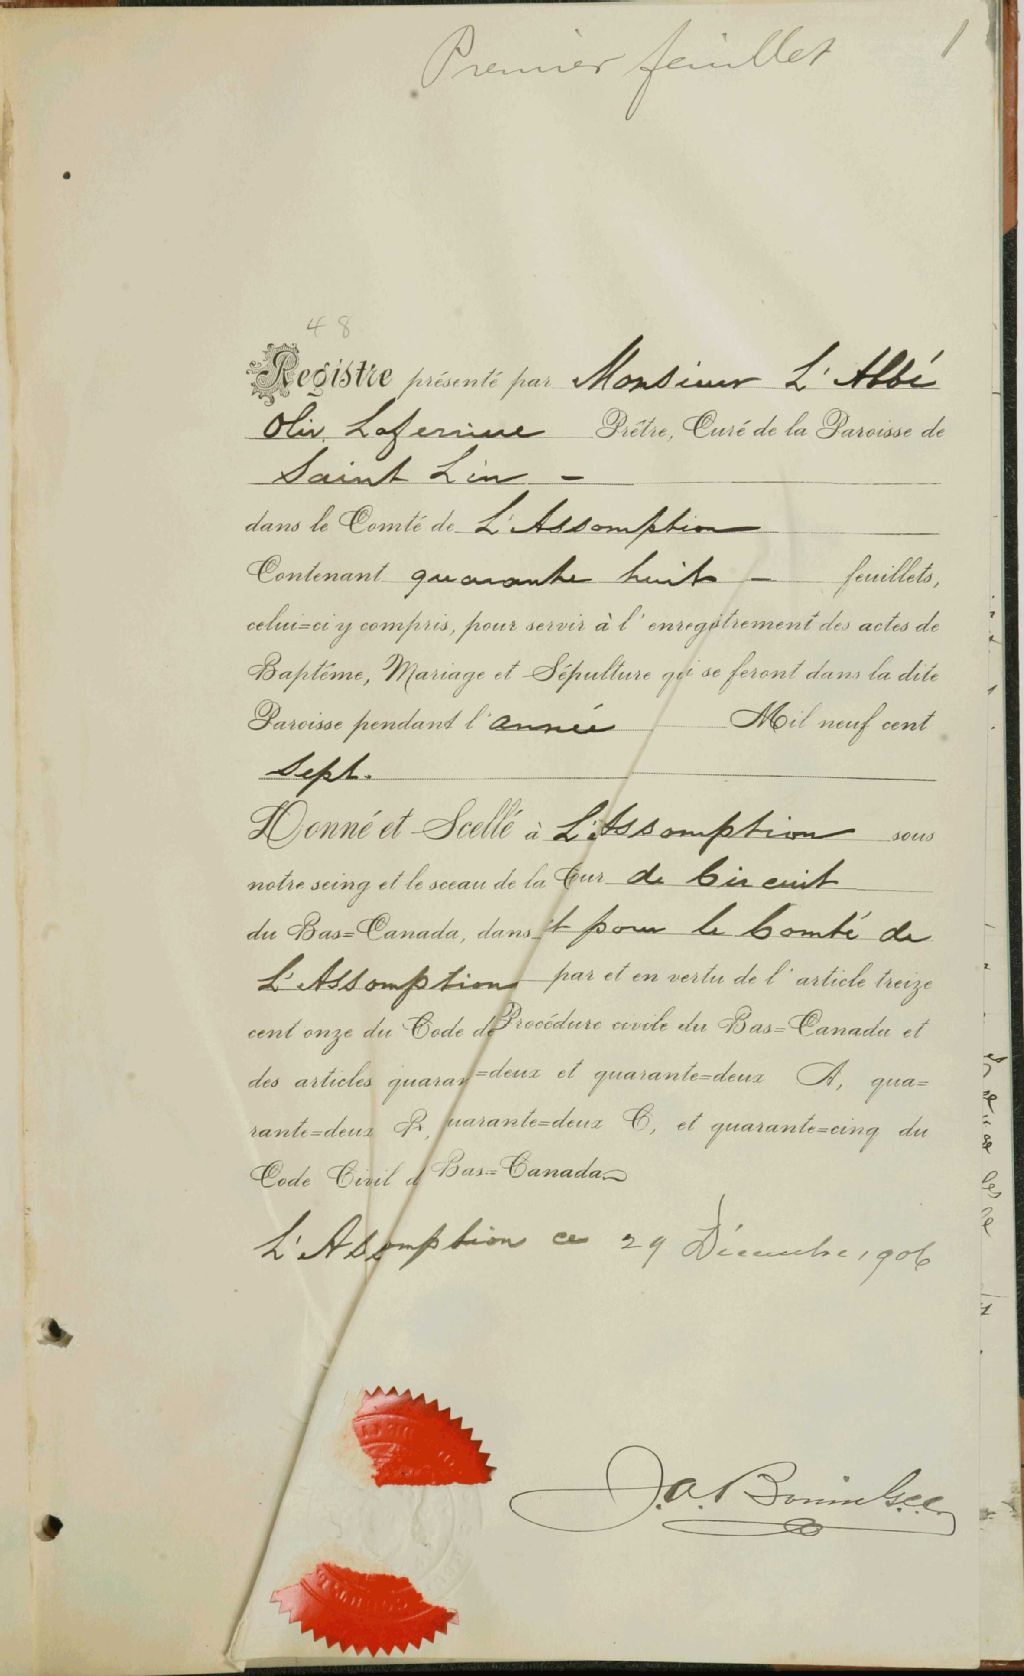 Premier feuillet 1
48
Registre présenté par Monsieur L'Abbé
Oliv. Laferriere Prêtre, Curé de la Paroisse de
Saint Lin –
dans le Comté de L'Assomption
Contenant quarante huit – feuillets,
celui=ci y compris, pour servir à l'enregîtrement des actes de
Baptême, Mariage et Sépulture qui se feront dans la dite
Paroisse pendant l'année Mil neuf cent
Sept.
Donné et Scellé à L'Assomption sous
notre seing et le sceau de la Cur de Circuit
du Bas=Canada, dans t pour le Comté de
L'Assomption par et en vertu de l'article treize
cent onze du Code de Procédure civile du Bas=Canada et
des articles quaran=deux et quarante=deux A, qua=
rante=deux B, uarante=deux C, et quarante=cinq du
Code Civil d Bas=Canada
L'Assomption ce 29 Décembre 1906
J. A. Bonin G.C.C.